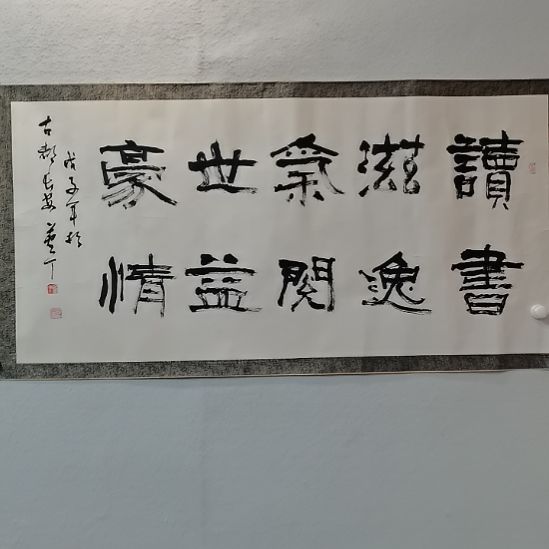 讀書
滋逸
氣閱
世益
豪情
戊子年於
古都長安